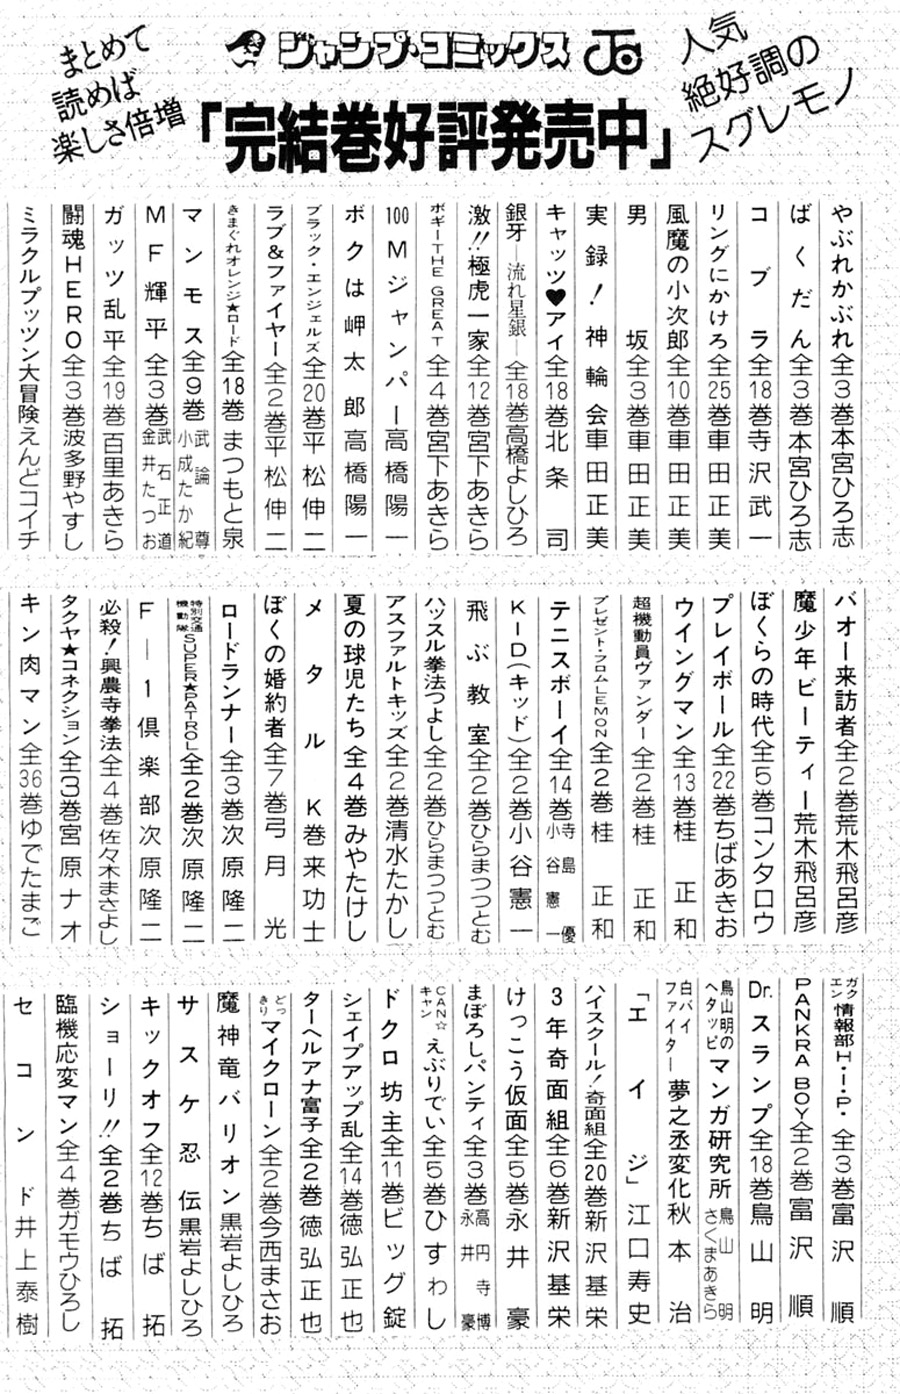 人気
絶好調の
スグレモノ
ジャンプ・コミックス
「完結巻好評発売中」
まとめて
読めば
楽しさ倍増
やぶれかぶれ全3巻本宮ひろ志
ばくだん全3巻本宮ひろ志
コブラ全18巻寺沢武一
リングにかけろ全25巻車田正美
風魔の小次郎全10巻車田正美
男坂全3巻車田正美
実録！神輪会車田正美
キャッツ♥アイ全18巻北条司
銀牙―流れ星銀―全18巻高橋よしひろ
激!!極虎一家全12巻宮下あきら
ボギーTHE GREAT全4巻宮下あきら
100Mジャンパー高橋陽一
ボクは岬太郎高橋陽一
ブラック・エンジェルズ全20巻平松伸二
ラブ&ファイヤー全2巻平松伸二
きまぐれオレンジ★ロード全18巻まつもと泉
マンモス全9巻武論尊 小成たか紀
MF輝平全3巻武石正道 金井たつお
ガッツ乱平全19巻百里あきら
闘魂HERO全3巻波多野やすし
ミラクルプッツン大冒険えんどコイチ
バオー来訪者全2巻荒木飛呂彦
魔少年ビーティー荒木飛呂彦
ぼくらの時代全5巻コンタロウ
プレイボール全22巻ちばあきお
ウイングマン全13巻桂正和
超機動員ヴァンダー全2巻桂正和
プレゼント・フロムLEMON全2巻桂正和
テニスボーイ全14巻寺島優 小谷憲一
KID(キッド)全2巻小谷憲一
飛ぶ教室全2巻ひらまつつとむ
ハッスル拳法つよし全2巻ひらまつつとむ
アスファルトキッズ全2巻清水たかし
夏の球児たち全4巻みやたけし
メタルK巻来功士
ぼくの婚約者全7巻弓月光
ロードランナー全3巻次原隆二
特別交通機動隊SUPER★PATROL全2巻次原隆二
F―1倶楽部次原隆二
必殺！興農寺拳法全4巻佐々木まさよし
タクヤ★コネクション全3巻宮原ナオ
キン肉マン全36巻ゆでたまご
ガクエン情報部H・I・P・全3巻富沢順
PANKRA BOY全2巻富沢順
Dr.スランプ全18巻鳥山明
鳥山明のヘタッピマンガ研究所鳥山明 さくまあきら
白バイファイター夢之丞変化秋本治
「エイジ」江口寿史
ハイスクール！奇面組全20巻新沢基栄
3年奇面組全6巻新沢基栄
けっこう仮面全5巻永井豪
まぼろしパンティ全3巻高円寺博 永井豪
CAN☆キャンえぶりでい全5巻ひすわし
ドクロ坊主全11巻ビッグ錠
シェイプアップ乱全14巻徳弘正也
ターヘルアナ富子全2巻徳弘正也
どっきりマイクローン全2巻今西まさお
魔神竜バリオン黒岩よしひろ
サスケ忍伝黒岩よしひろ
キックオフ全12巻ちば拓
ショーリ!!全2巻ちば拓
臨機応変マン全4巻ガモウひろし
セコンド井上泰樹